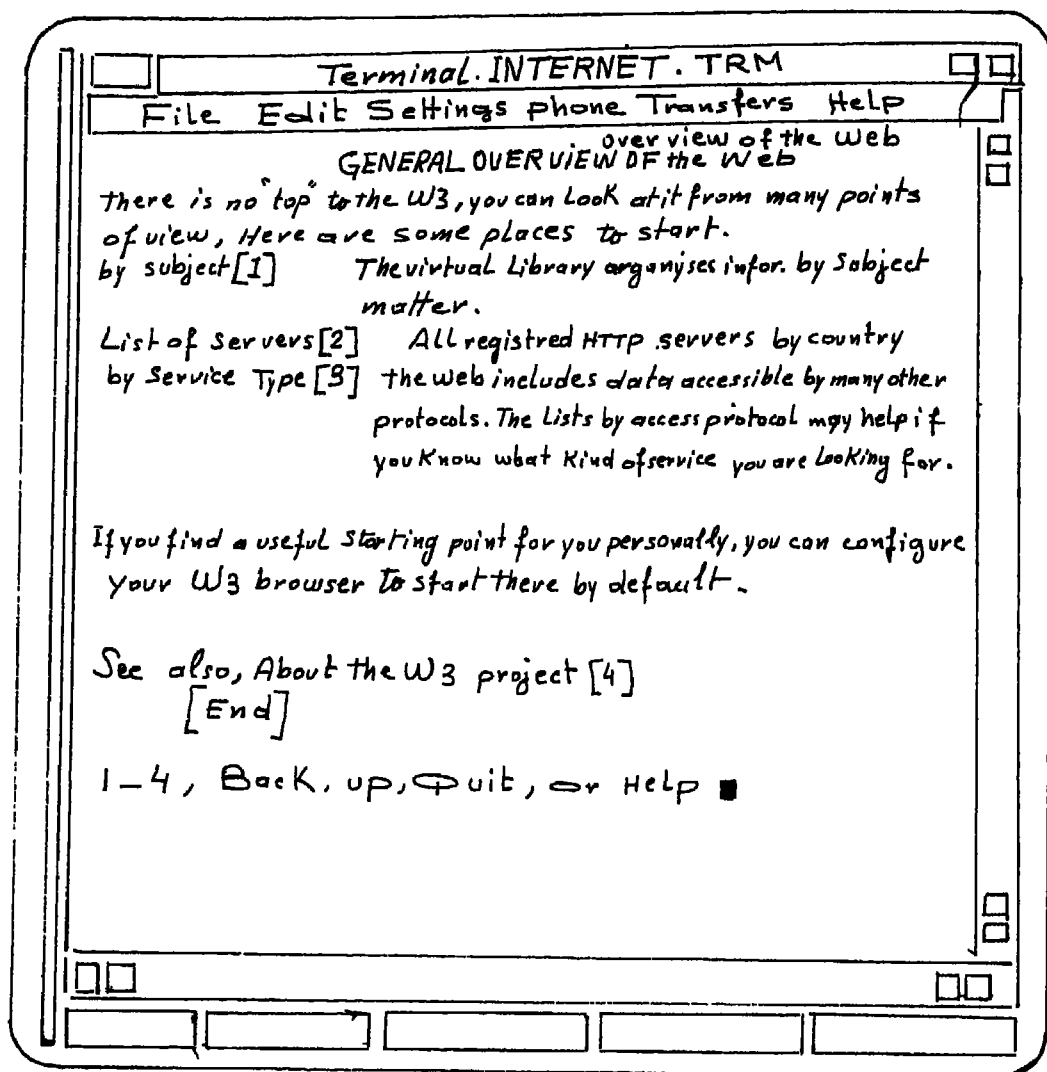 Terminal.INTERNET.TRM
File Edit Settings phone Transfers Help
over view of the Web
GENERAL OVERVIEW OF the Web
there is no "top" to the W3, you can Look at it from many points
of view, Here are some places to start.
by subject [1] The virtual Library organyses infor. by Subject
matter.
List of Servers [2] All registred HTTP servers by country
by Service Type [3] the web includes data accessible by many other
protocols. The Lists by access protocol may help if
you Know what Kind of service you are Looking for.
If you find a useful Starting point for you personally, you can configure
your W3 browser to start there by default.
See also, About the W3 project [4]
[End]
1-4, Back, up, Quit, or Help